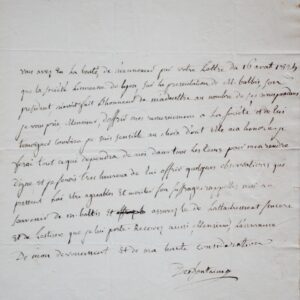 vous avez eu la bonté de m'annoncer par votre lettre du 16 avril 1824
que la société Linnéenne de Lyon sur la présentation de M. balbis, son
président avoit fait l'honneur de m'admettre au nombre de ses correspondans
je vous prie Monsieur d'offrir mes remerciemens à la société et de lui
témoigner combien je suis sensible au choix dont elle m'a honoré. je
ferai tout ce qui dépendra de moi dans tous les tems pour m'en rendre
digne et je serois très heureux de lui offrir quelques observations qui
pussent lui être agréables et mériter son suffrage. rappellez moi au
souvenir de M. balbis et assurez le de l'attachement sincère
et de l'estime que je lui porte. Recevez aussi Monsieur l'assurance
de mon dévouement et de ma haute considération
Desfontaines